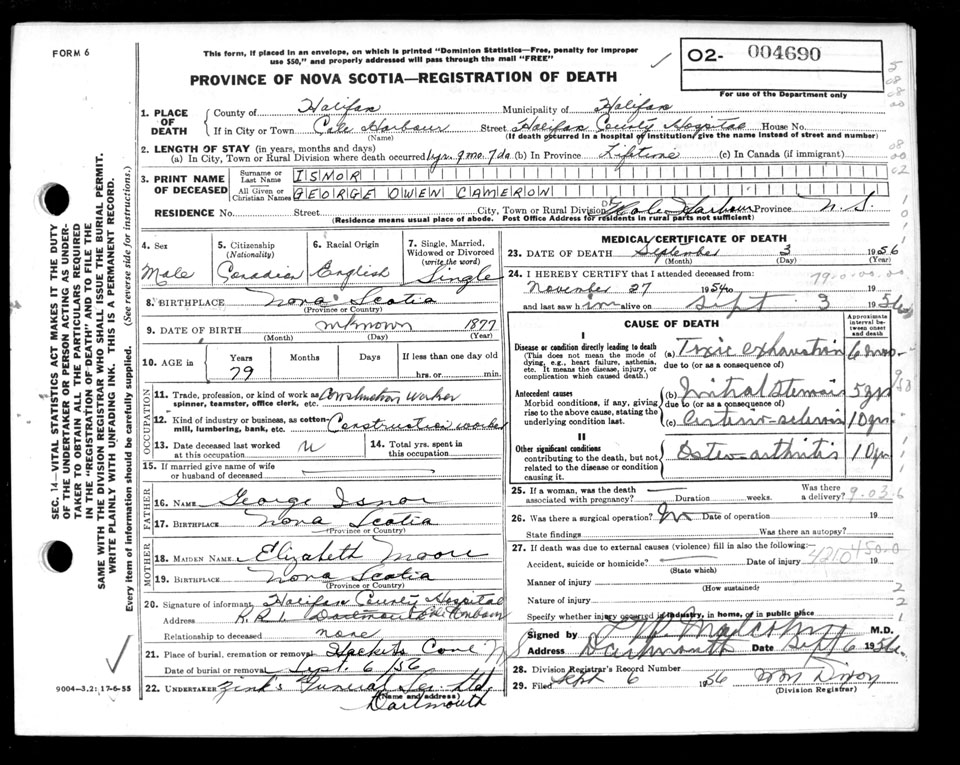 FORM 6
This form, if placed in an envelope, on which is printed "Dominion Statistics—Free, penalty for improper
use $50," and properly addressed will pass through the mail "FREE"
PROVINCE OF NOVA SCOTIA—REGISTRATION OF DEATH
O2- 004690
For use of the Department only
SEC. 14—VITAL STATISTICS ACT MAKES IT THE DUTY
OF THE UNDERTAKER OR PERSON ACTING AS UNDER-
TAKER TO OBTAIN ALL THE PARTICULARS REQUIRED
IN THE "REGISTRATION OF DEATH" AND TO FILE THE
SAME WITH THE DIVISION REGISTRAR WHO SHALL ISSUE THE BURIAL PERMIT.
WRITE PLAINLY WITH UNFADING INK. THIS IS A PERMANENT RECORD.
Every item of information should be carefully supplied. (See reverse side for instructions.)
1. PLACE OF DEATH County of Halifax Municipality of Halifax
If in City or Town Cole Harbour Street Halifax County Hospital House No.
(Name) (If death occurred in a hospital or institution, give the name instead of street and number)
2. LENGTH OF STAY (in years, months and days)
(a) In City, Town or Rural Division where death occurred 1 yr. 9 mo. 7 da (b) In Province Lifetime (c) In Canada (if immigrant)
3. PRINT NAME OF DECEASED Surname or Last Name ISNOR
All Given or Christian Names GEORGE OWEN CAMERON
RESIDENCE No. Street City, Town or Rural Division Cole Harbour Province N.S.
(Residence means usual place of abode. Post Office Address for residents in rural parts not sufficient)
4. Sex Male
5. Citizenship (Nationality) Canadian
6. Racial Origin English
7. Single, Married, Widowed or Divorced (write the word) Single
8. BIRTHPLACE Nova Scotia
(Province or Country)
9. DATE OF BIRTH unknown 1877
(Month) (Day) (Year)
10. AGE in Years Months Days If less than one day old
79 hrs. or min.
OCCUPATION
11. Trade, profession, or kind of work as spinner, teamster, office clerk, etc. Construction worker
12. Kind of industry or business, as cotton mill, lumbering, bank, etc. Construction worker
13. Date deceased last worked at this occupation U
14. Total yrs. spent in this occupation
15. If married give name of wife or husband of deceased
FATHER
16. NAME George Isnor
17. BIRTHPLACE Nova Scotia
(Province or Country)
MOTHER
18. MAIDEN NAME Elizabeth Moore
19. BIRTHPLACE Nova Scotia
(Province or Country)
20. Signature of informant Halifax County Hospital
Address R.R.1. Dartmouth
Relationship to deceased none
21. Place of burial, cremation or removal Hackets Cove NS
Date of burial or removal Sept. 6/56
22. UNDERTAKER Zink's Funeral Ser. Ltd.
(Name and address)
Dartmouth
9004—3.2: 17-6-55
MEDICAL CERTIFICATE OF DEATH
23. DATE OF DEATH September 3 1956
(Month) (Day) (Year)
24. I HEREBY CERTIFY that I attended deceased from:
November 27 1954 to 19
and last saw him alive on Sept 3 1956
CAUSE OF DEATH
Approximate interval between onset and death
I
Disease or condition directly leading to death
(This does not mean the mode of dying, e.g., heart failure, asthenia, etc. It means the disease, injury, or complication which caused death.)
(a) Toxic exhaustion 6 mos.
due to (or as a consequence of)
Antecedent causes
Morbid conditions, if any, giving rise to the above cause, stating the underlying condition last.
(b) Mitral Stenosis 5 yr
due to (or as a consequence of)
(c) Arterio-sclerosis 10 yr
II
Other significant conditions
contributing to the death, but not related to the disease or condition causing it.
Osteo-arthritis 10 yr
25. If a woman, was the death associated with pregnancy? Duration weeks. Was there a delivery?
9-03-6
26. Was there a surgical operation? No Date of operation 19
State findings Was there an autopsy?
27. If death was due to external causes (violence) fill in also the following:
Accident, suicide or homicide? Date of injury 19
(State which)
Manner of injury
(How sustained)
Nature of injury
Specify whether injury occurred in industry, in home, or in public place
Signed by Malcolm M.D.
Address Dartmouth Date Sept 6 1956
28. Division Registrar's Record Number
29. Filed Sept 6 1956 Wm Dixon
(Division Registrar)